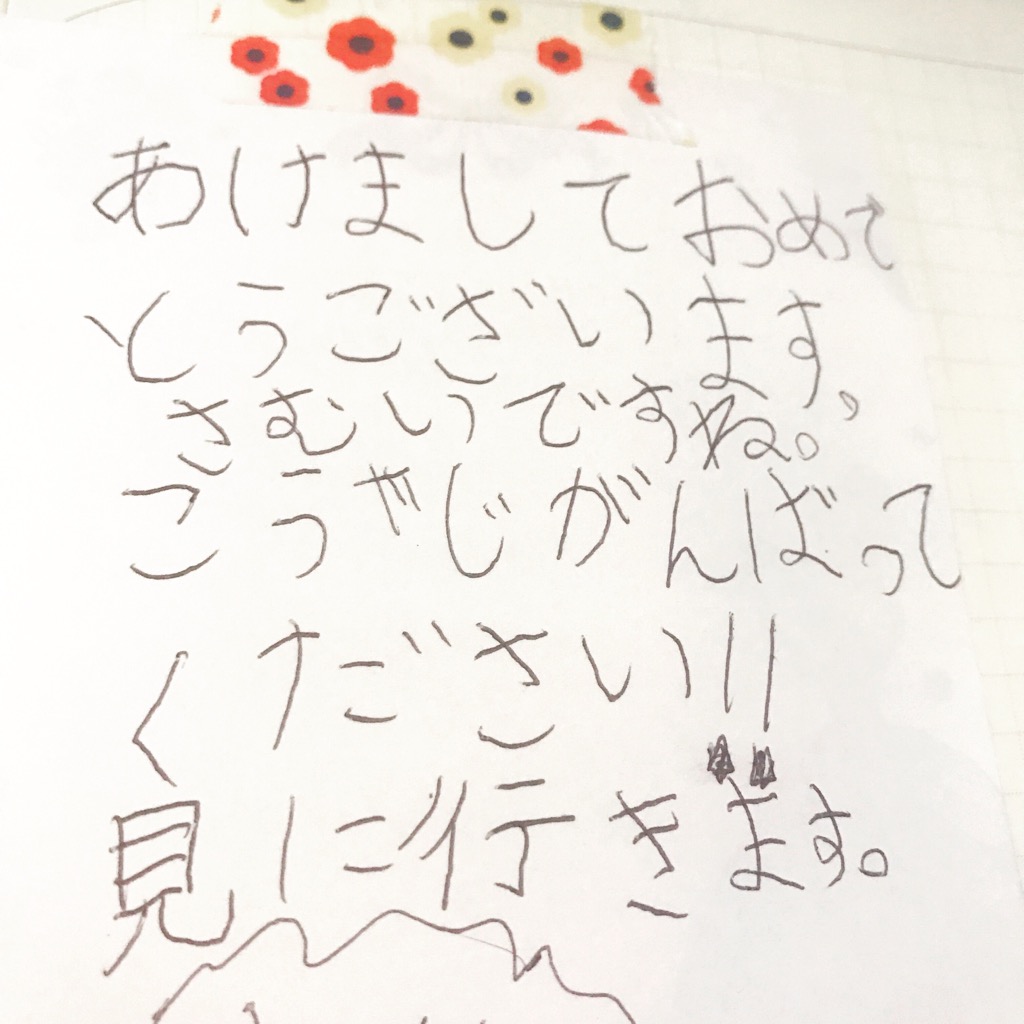 あけましておめて
とうございます、
さむいですね。
こうやじがんばって
ください!!
見に行きます。